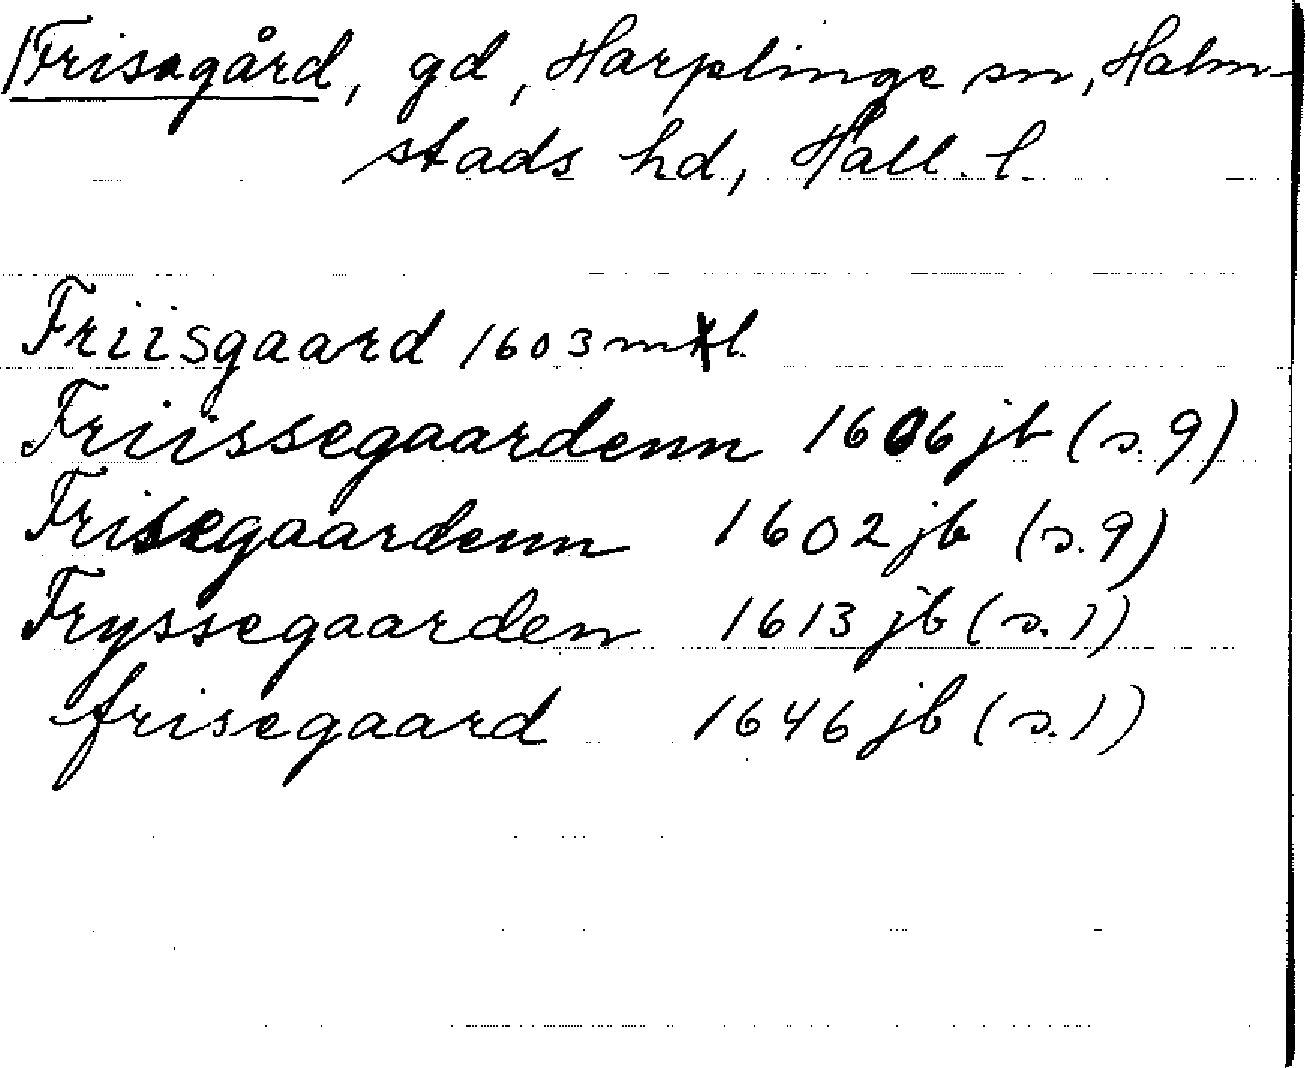 /Frisagård, gd, Harplinge sn, Halm-
stads hd, Hall. l.
Friisgaard 1603 mtl.
Friissegaardenn 1606 jb (s. 9)
Frisegaardenn 1602 jb (s. 9)
Fryssegaarden 1613 jb (s. 1)
frisegaard 1646 jb (s. 1)